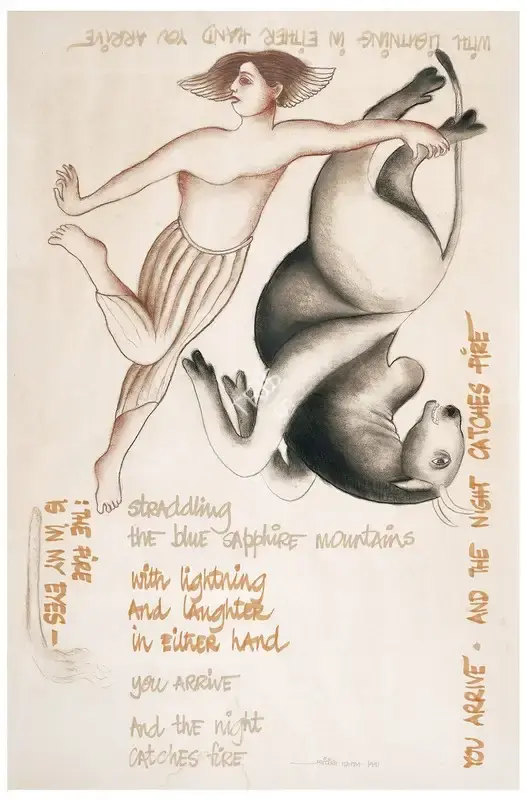 WITH LIGHTNING IN EITHER HAND YOU ARRIVE
YOU ARRIVE • AND THE NIGHT CATCHES FIRE
: THE FIRE
IS IN MY EYES—
straddling
the blue sapphire mountains
with lightning
And laughter
in EiTHER hand
you ARRIVE
And the night
CATCHES fire
1981